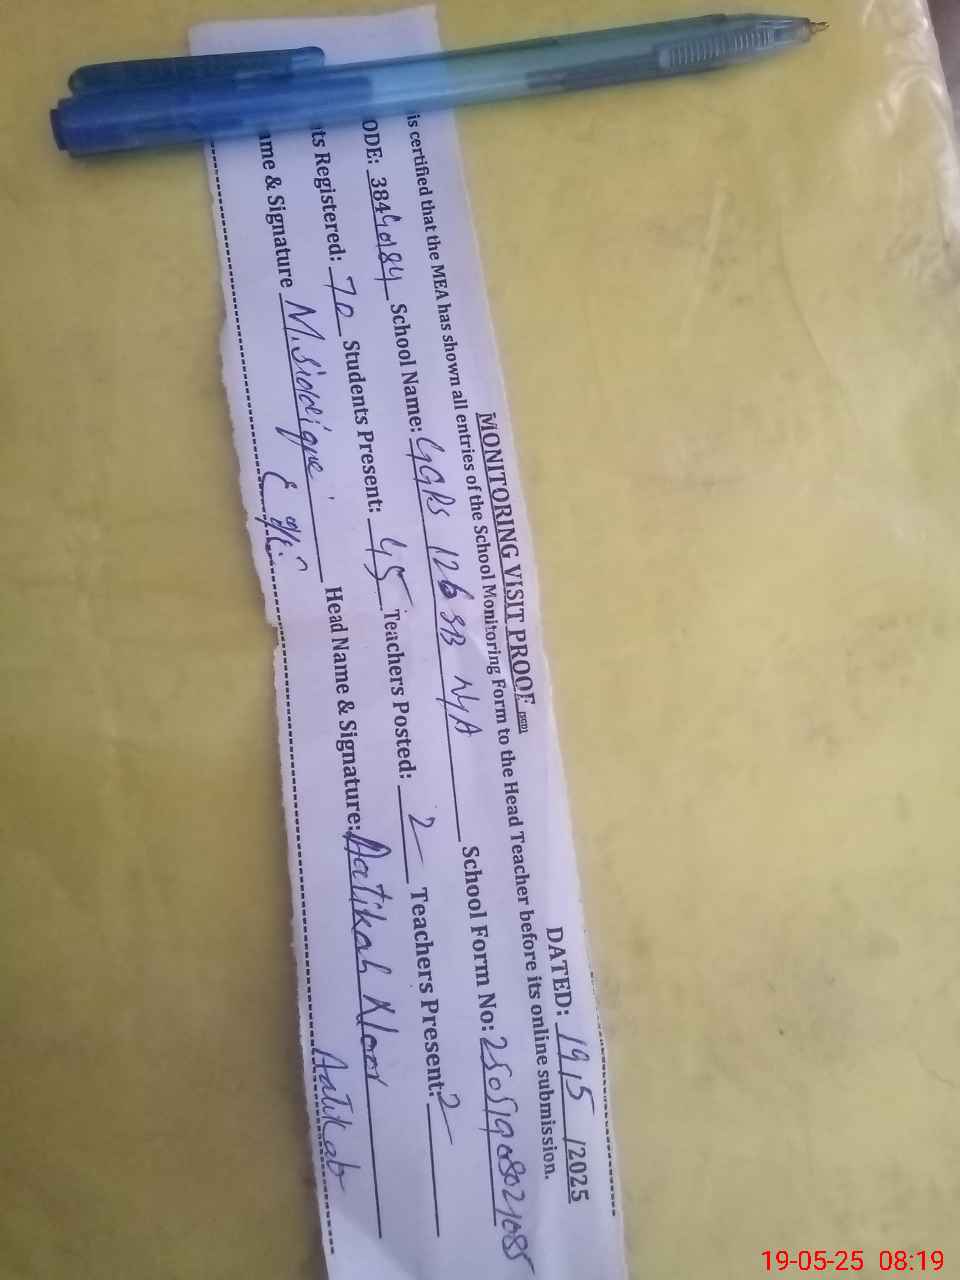 MONITORING VISIT PROOF (SGD)
DATED: 19/5/2025
is certified that the MEA has shown all entries of the School Monitoring Form to the Head Teacher before its online submission.
ODE: 38440184 School Name: GGPS 126 SB NYA School Form No:
ts Registered: 70 Students Present: 45 Teachers Posted: 2 Teachers Present: 2
ame & Signature M. Siddique Head Name & Signature: Aatikah Noor
Aatikah
19-05-25 08:19